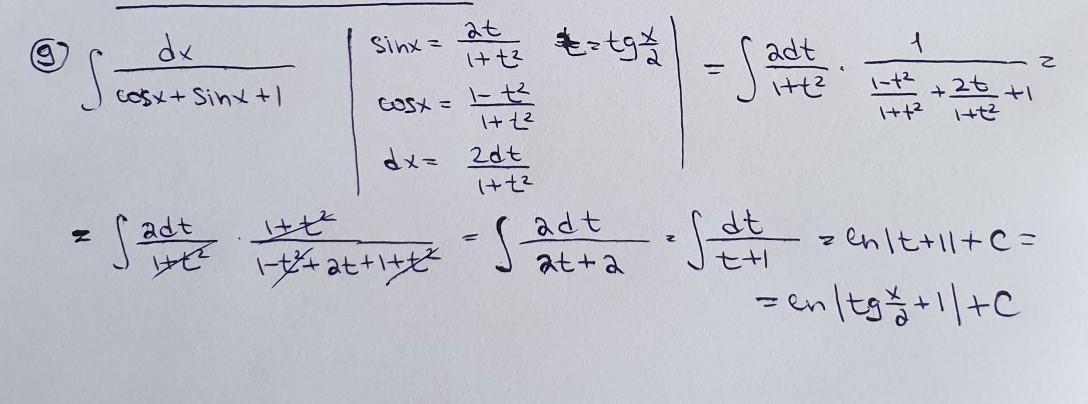 ⑨ ∫ dx/(cosx + sinx + 1) | sinx = 2t/(1+t²) t = tg x/2 | = ∫ 2dt/(1+t²) · 1/((1-t²)/(1+t²) + 2t/(1+t²) + 1) =
cosx = (1-t²)/(1+t²)
dx = 2dt/(1+t²)
= ∫ 2dt/(1+t²) · (1+t²)/(1-t²+2t+1+t²) = ∫ 2dt/(2t+2) = ∫ dt/(t+1) = ln|t+1| + C =
= ln|tg x/2 + 1| + C